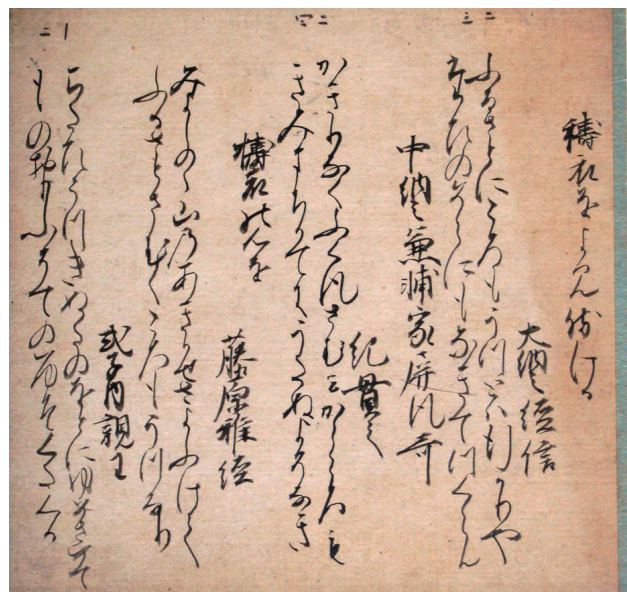 擣衣をよみ侍ける
大納言経信
ふるさとにころもうつとは行かりや
たひのそらにもなきてつくらん
中納言兼輔家屏風哥
紀貫之
ふく風さむみからころも
きみまちかてにうたぬよそなき
擣衣の心を
藤原雅経
みよしのゝ山のあきかせさよふけて
ふるさとさむくころもうつなり
式子内親王
ちたひうつきぬたのをとにゆめさめて
ものおもふそてのつゆそくたくる